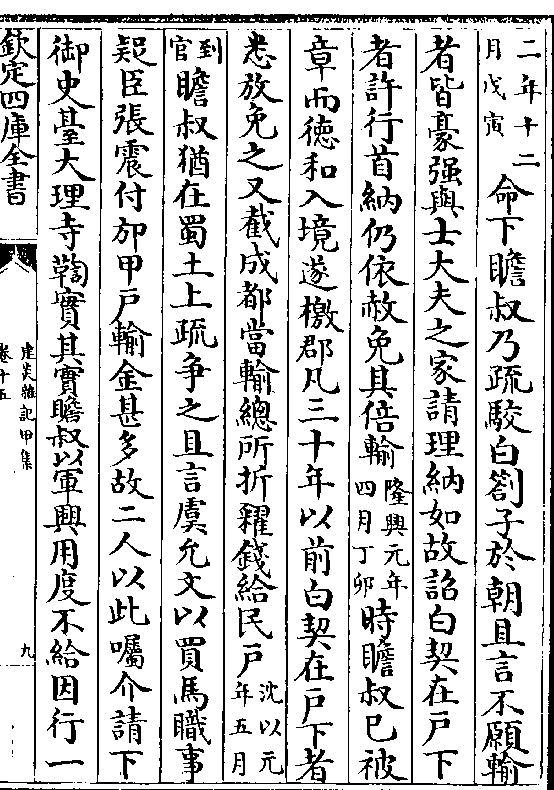 二年十二月戊寅命下瞻叔乃疏駮白劄子於朝且言不願輸
者皆豪强與士大夫之家請理納如故詔白契在戸下
者許行首納仍依赦免其倍輸隆興元年四月丁卯時瞻叔已被
章而徳和入境遂檄郡凡三十年以前白契在戸下者
悉放免之又截成都當輸總所折糴錢給民戸沈以元年五月
到官瞻叔猶在蜀土上疏争之且言虞允文以買馬職事
疑臣張震付卭甲戸輸金甚多故二人以此囑介請下
御史臺大理寺鞫實其實瞻叔以軍興用度不給因行一
欽定四庫全書
建炎雜記甲集
卷十五
九